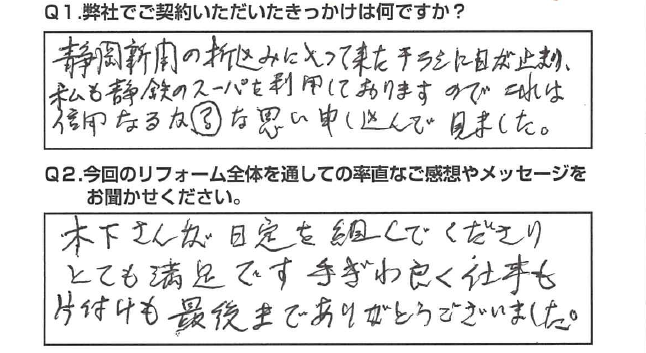 Q1.弊社でご契約いただいたきっかけは何ですか？
静岡新聞の折込みに入って来たチラシに目が止まり、
私も静鉄のスーパーを利用しておりますのでこれは
信用なるな な思い申し込んで見ました。
Q2.今回のリフォーム全体を通しての率直なご感想やメッセージを
お聞かせください。
木下さんが日定を組んでくださり
とても満足です手ぎわ良く仕事も
片付けも最後までありがとうございました。